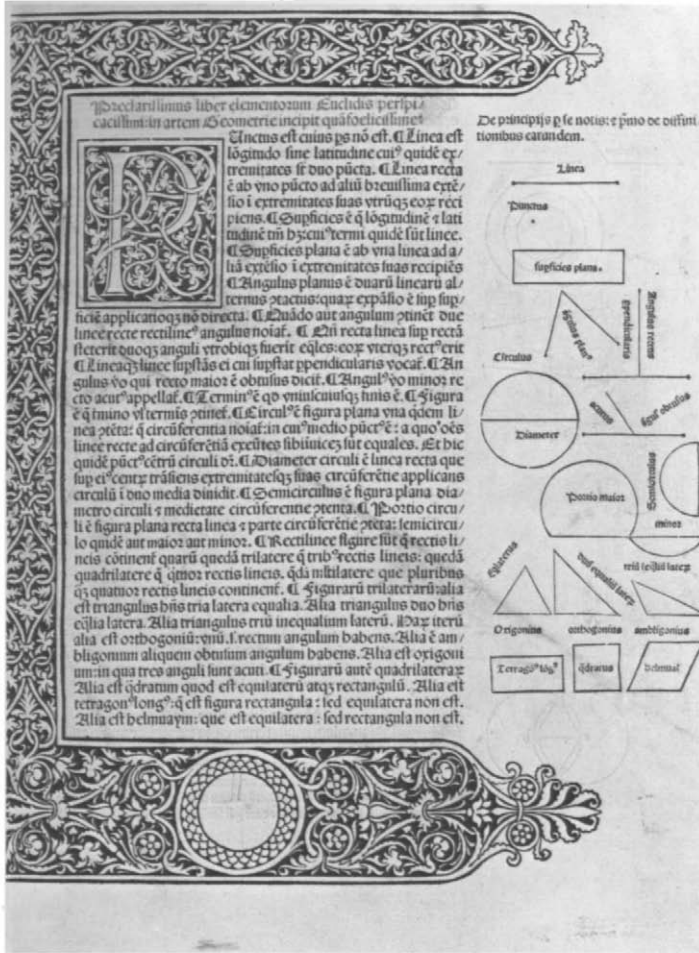 Preclarissimus liber elementorum Euclidis perspi/
cacissimi: in artem Geometrie incipit quāfoelicissime:
Unctus est cuius ps nō est. ¶ Linea est
lōgitudo sine latitudine cuiꝰ quidē ex/
tremitates sūt duo pūcta. ¶ Linea recta
ē ab vno pūcto ad aliū breuissima extē/
sio ī extremitates suas vtrūqꝫ eoꝝ reci
piens. ¶ Supficies ē q̄ lōgitudinē ⁊ lati
tudinē tm̄ hꝫ: cuiꝰ termi quidē sūt linee.
¶ Supficies plana ē ab vna linea ad a/
liā extēsio ī extremitates suas recipiēs
¶ Angulus planus ē duarū linearū al/
ternus ꝯtactus: quaꝝ expāsio ē sup sup/
ficiē applicatioqꝫ nō directa. ¶ Quādo aut angulum ꝯtinēt due
linee recte rectilineꝰ angulus noiat̄. ¶ Qn̄ recta linea sup rectā
steterit duoqꝫ anguli vtrobiqꝫ fuerit eq̄les: eoꝝ vterqꝫ rectꝰ erit
¶ Lineaqꝫ linee supstās ei cui supstat ppendicularis vocat̄. ¶ An
gulus vo qui recto maior ē obtusus dicit̄. ¶ Angulꝰ vo minor re
cto acutꝰ appellat̄. ¶ Terminꝰ ē qd vniuscuiusqꝫ finis ē. ¶ Figura
ē q̄ tmino vl terminis ꝯtinet̄. ¶ Circulꝰ ē figura plana vna qdem li/
nea ꝯtēta: q̄ circūferentia noiat̄: in cuiꝰ medio pūctꝰ ē: a quo oēs
linee recte ad circūferētiā exeūtes sibiinuicē sūt equales. Et hic
quidē pūctꝰ cētrū circuli dr̄. ¶ Diameter circuli ē linea recta que
sup eiꝰ centꝝ trāsiens extremitatesqꝫ suas circūferētie applicans
circulū ī duo media diuidit. ¶ Semicirculus ē figura plana dia/
metro circuli ⁊ medietate circūferentie ꝯtenta. ¶ Portio circu/
li ē figura plana recta linea ⁊ parte circūferētie ꝯtēta: semicircu/
lo quidē aut maior aut minor. ¶ Rectilinee figure sūt q̄ rectis li/
neis cōtinent̄ quarū quedā trilatere q̄ tribꝰ rectis lineis: quedā
quadrilatere q̄ q̄tuor rectis lineis. q̄dā mltilatere que pluribus
qꝫ quatuor rectis lineis continent̄. ¶ Figurarū trilaterarū: alia
est triangulus hn̄s tria latera equalia. Alia triangulus duo hn̄s
eq̄lia latera. Alia triangulus triū inequalium laterū. Haꝝ iterū
alia est orthogoniū: vnū .s. rectum angulum habens. Alia ē am/
bligonium aliquem obtusum angulum habens. Alia est oxigoni
um: in qua tres anguli sunt acuti. ¶ Figurarū autē quadrilateraꝝ
Alia est q̄dratum quod est equilaterū atqꝫ rectangulū. Alia est
tetragonꝰ longꝰ: q̄ est figura rectangula: sed equilatera non est.
Alia est helmuaym: que est equilatera: sed rectangula non est.
De principijs p se notis: ⁊ pmo de diffini
tionibus earundem.
Linea
Punctus
supficies plana.
āgulus planꝰ
ppendicularis
Angulus rectus
Circulus
Diameter
acutus
āgulꝰ obtusus
Portio maior
Semicirculus
minor
Eq̄laterus
duoꝝ equaliū lateꝝ
triū īeq̄liū lateꝝ
Oxigonius
orthogonius
ambligonius
Tetragōꝰ lōgꝰ
q̄dratus
helmuaī